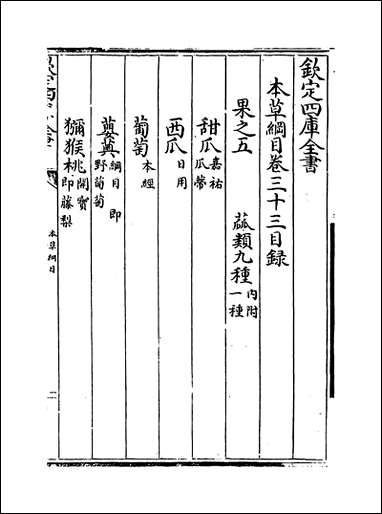 欽定四庫全書
本草綱目卷三十三目録
果之五 蓏類九種内附一種
甜瓜嘉祐瓜蒂
西瓜日用
葡萄本經
蘡薁綱目即野葡萄
獼猴桃開寶即藤梨
本草綱目